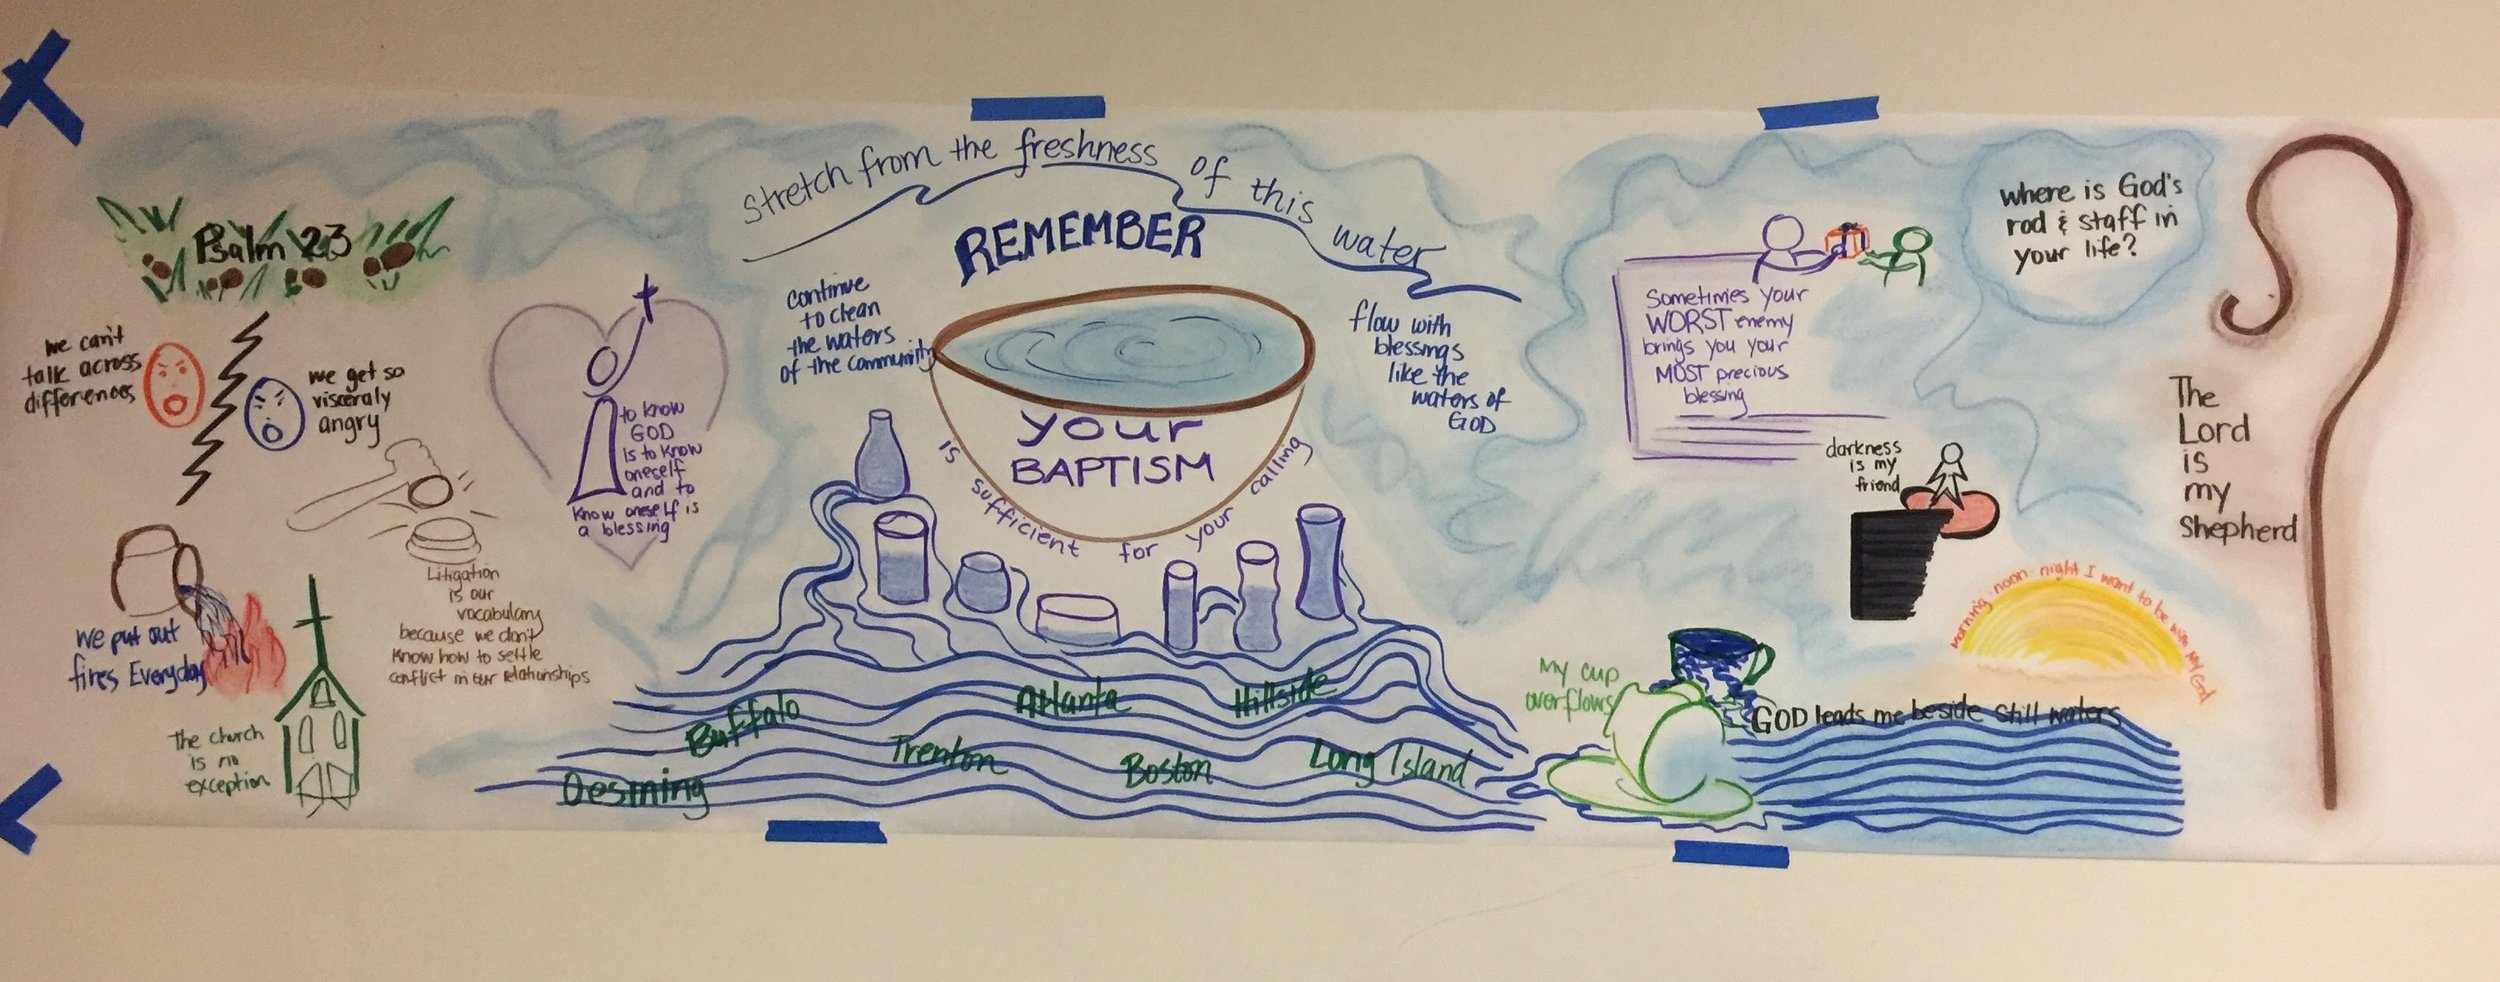 Psalm 23
we can't
talk across
differences
we get so
visceraly
angry
Litigation
is our
vocabulary
because we don't
know how to settle
conflict in our relationships
we put out
fires Everyday
The church
is no
exception
to know
GOD
is to know
oneself
and to
know oneself is
a blessing
stretch from the freshness of this water
REMEMBER
continue
to clean
the waters
of the community
flow with
blessings
like the
waters of
GOD
your
BAPTISM
is sufficient for your calling
Buffalo
Atlanta
Hillside
Trenton
Boston
Long Island
Sometimes your
WORST enemy
brings you your
MOST precious
blessing
where is God's
rod & staff in
your life?
darkness
is my
friend
morning noon night I want to be with my God
My cup
overflows
GOD leads me beside still waters
The
Lord
is
my
Shepherd